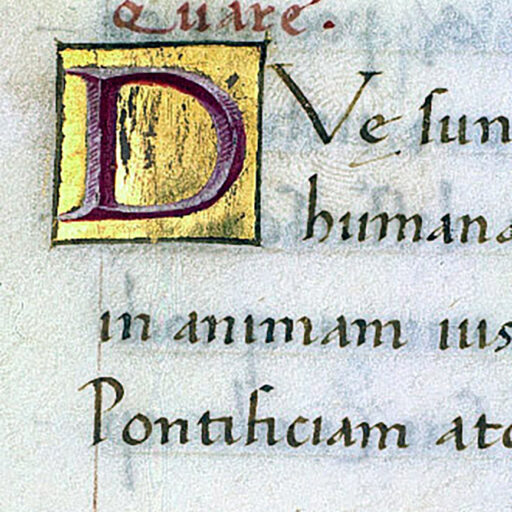 Quare.
DVe sun
humana
in animam ius
Pontificiam atq